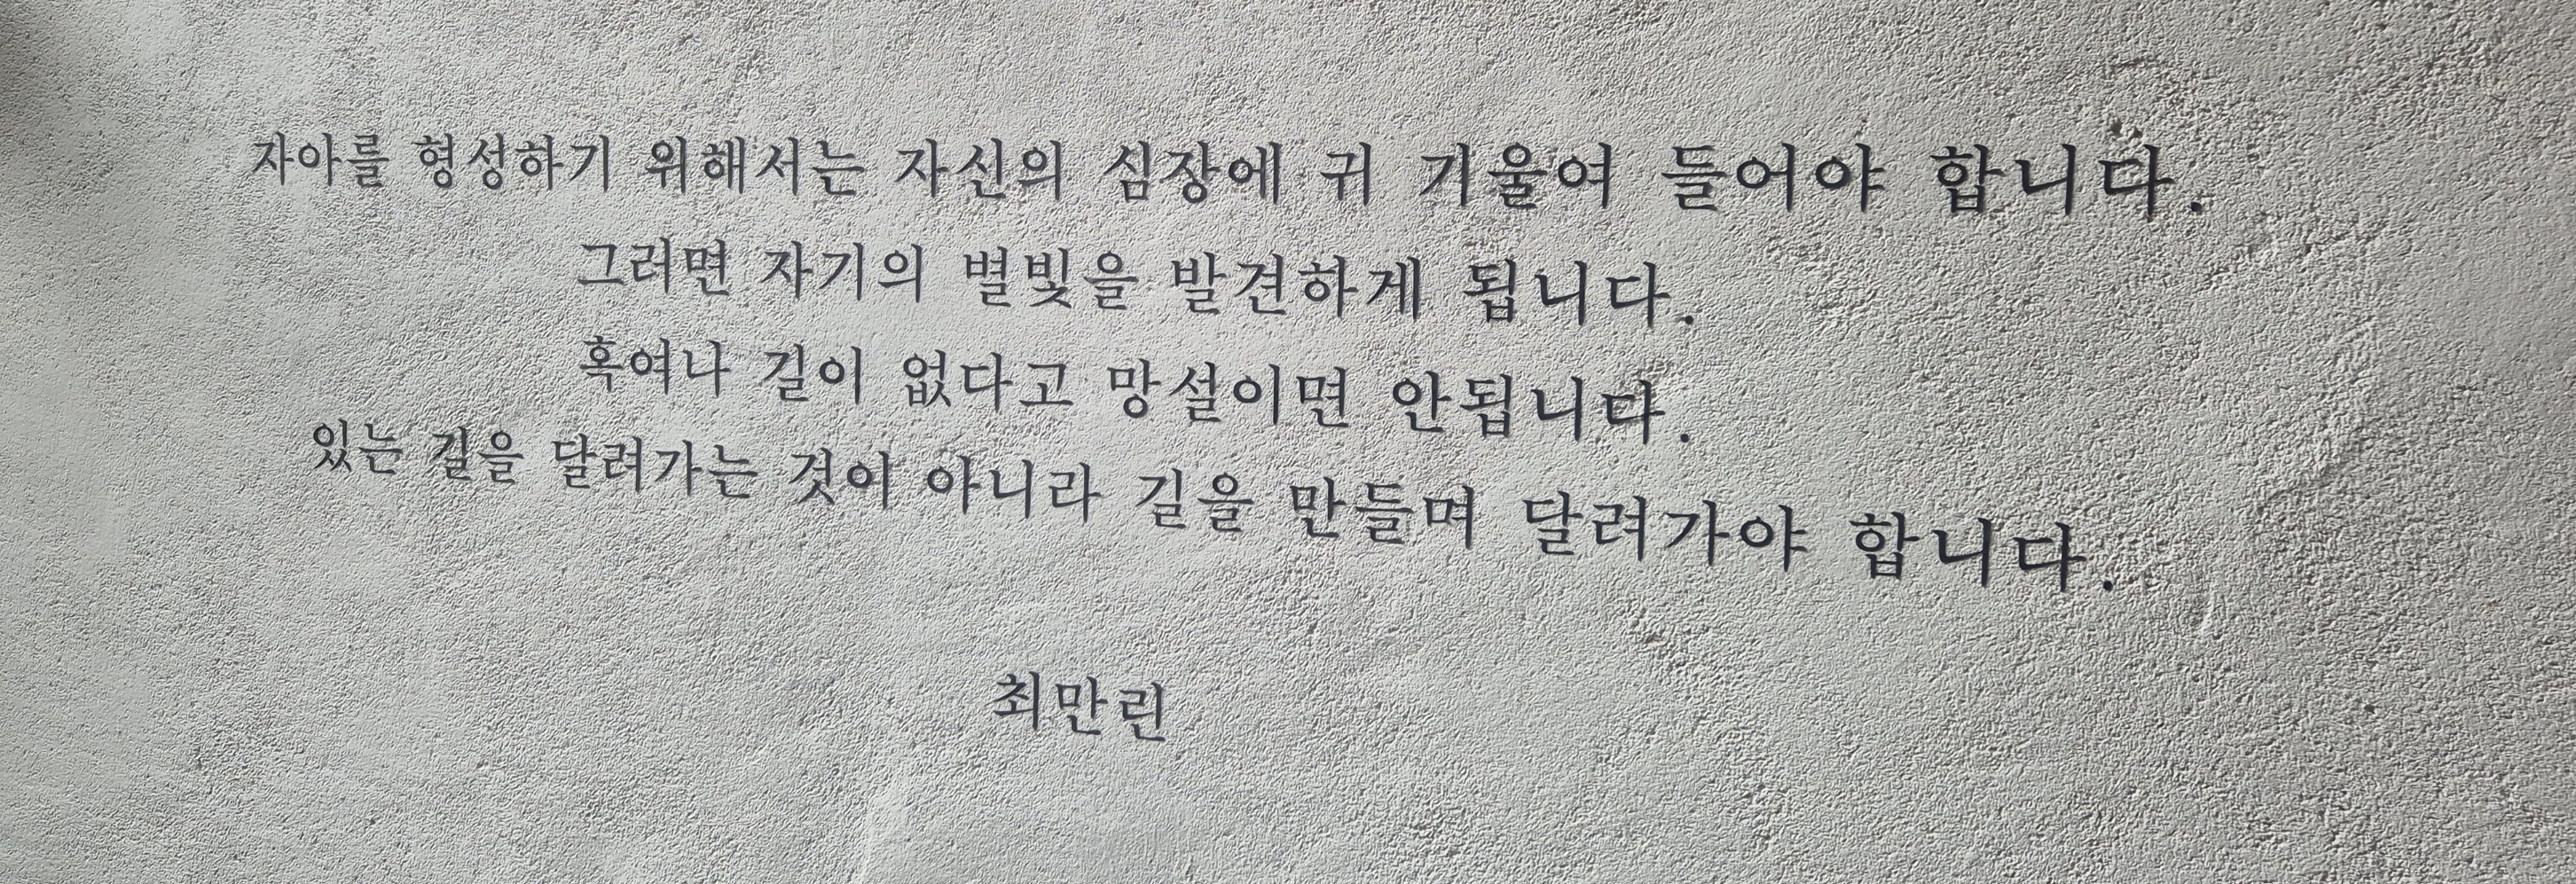 자아를 형성하기 위해서는 자신의 심장에 귀 기울여 들어야 합니다.
그러면 자기의 별빛을 발견하게 됩니다.
혹여나 길이 없다고 망설이면 안됩니다.
있는 길을 달려가는 것이 아니라 길을 만들며 달려가야 합니다.
최만린